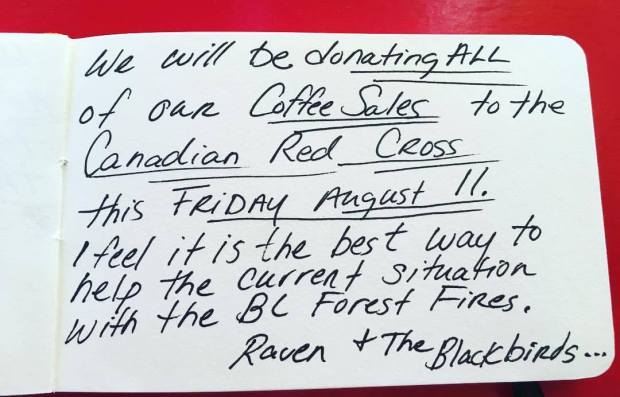 We will be donating ALL
of our Coffee Sales to the
Canadian Red Cross
this FRIDAY August 11.
I feel it is the best way to
help the current situation
with the BC Forest Fires.
Raven + The Blackbirds...